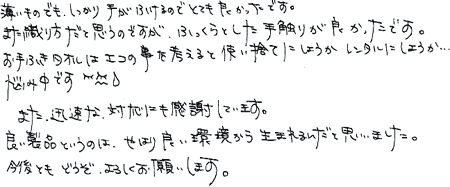 薄いものでも、しっかり手がふけるのでとても良かったです。
また織り方だと思うのですが、ふっくらとした手触りが良かったです。
お手ふきタオルはエコの事を考えると使い捨てにしようかレンタルにしようか…
悩み中です~~
また、迅速な対応にも感謝しています。
良い製品というのは、やはり良い環境から生まれるんだと思いました。
今後ともどうぞ、よろしくお願いします。